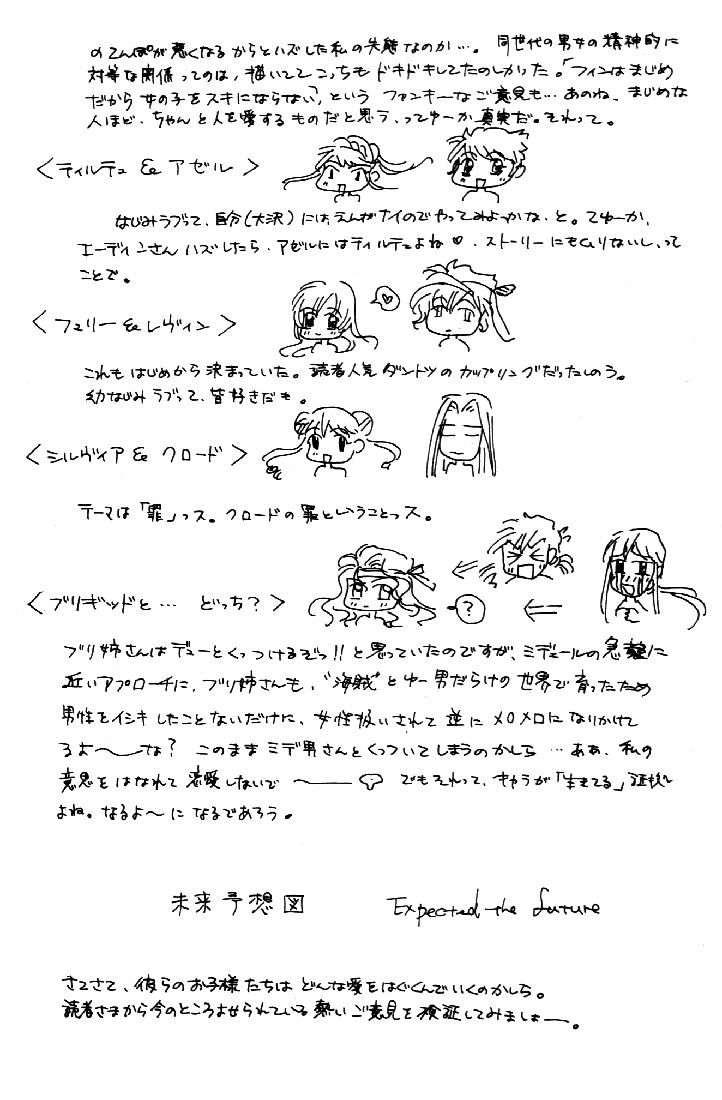 のてんぽが悪くなるからとハズした私の失態なのか…。同世代の男女の精神的に
対等な関係ってのは、描いててこっちもドキドキしてたのしかった。「フィンはまじめ
だから女の子をスキにならない」という ファンキーなご意見も… あのね、まじめな
人ほど、ちゃんと人を愛するものだと思う、ってゆーか真実だ。それって。
〈ティルテュ & アゼル〉
なじみラブって、自分(大沢)にはえんがナイのでやってみよーかな、と。てゆーか、
エーディンさんハズしたら、アゼルにはティルテュよね♡。ストーリーにもムリないし、って
ことで。
〈フュリー & レヴィン〉
♡
これもはじめから決まっていた。読者人気ダントツのカップリングだったしのう。
幼なじみラブって、皆好きだも。
〈シルヴィア & クロード〉
テーマは「罪」っス。クロードの罪ということっス。
〈ブリギッドと… どっち?〉
?
ブリ姉さんはデューとくっつけるぞっ!!と思っていたのですが、ミデェールの急襲に
近いアプローチに、ブリ姉さんも、"海賊"とゆー男だらけの世界で育ったため
男性をイシキしたことないだけに、女性扱いされて逆にメロメロになりかけて
るよ〜な? このままミデ男さんとくっついてしまうのかしら…ああ、私の
意思をはなれて恋愛しないで〜 でもそれって、キャラが「生きてる」証拠
よね。なるよ〜になるであろう。
未来予想図 Expected the future
さてさて、彼らのお子様たちはどんな愛をはぐくんでいくのかしら。
読者さまから今のところよせられている熱いご意見を検証してみましょー。